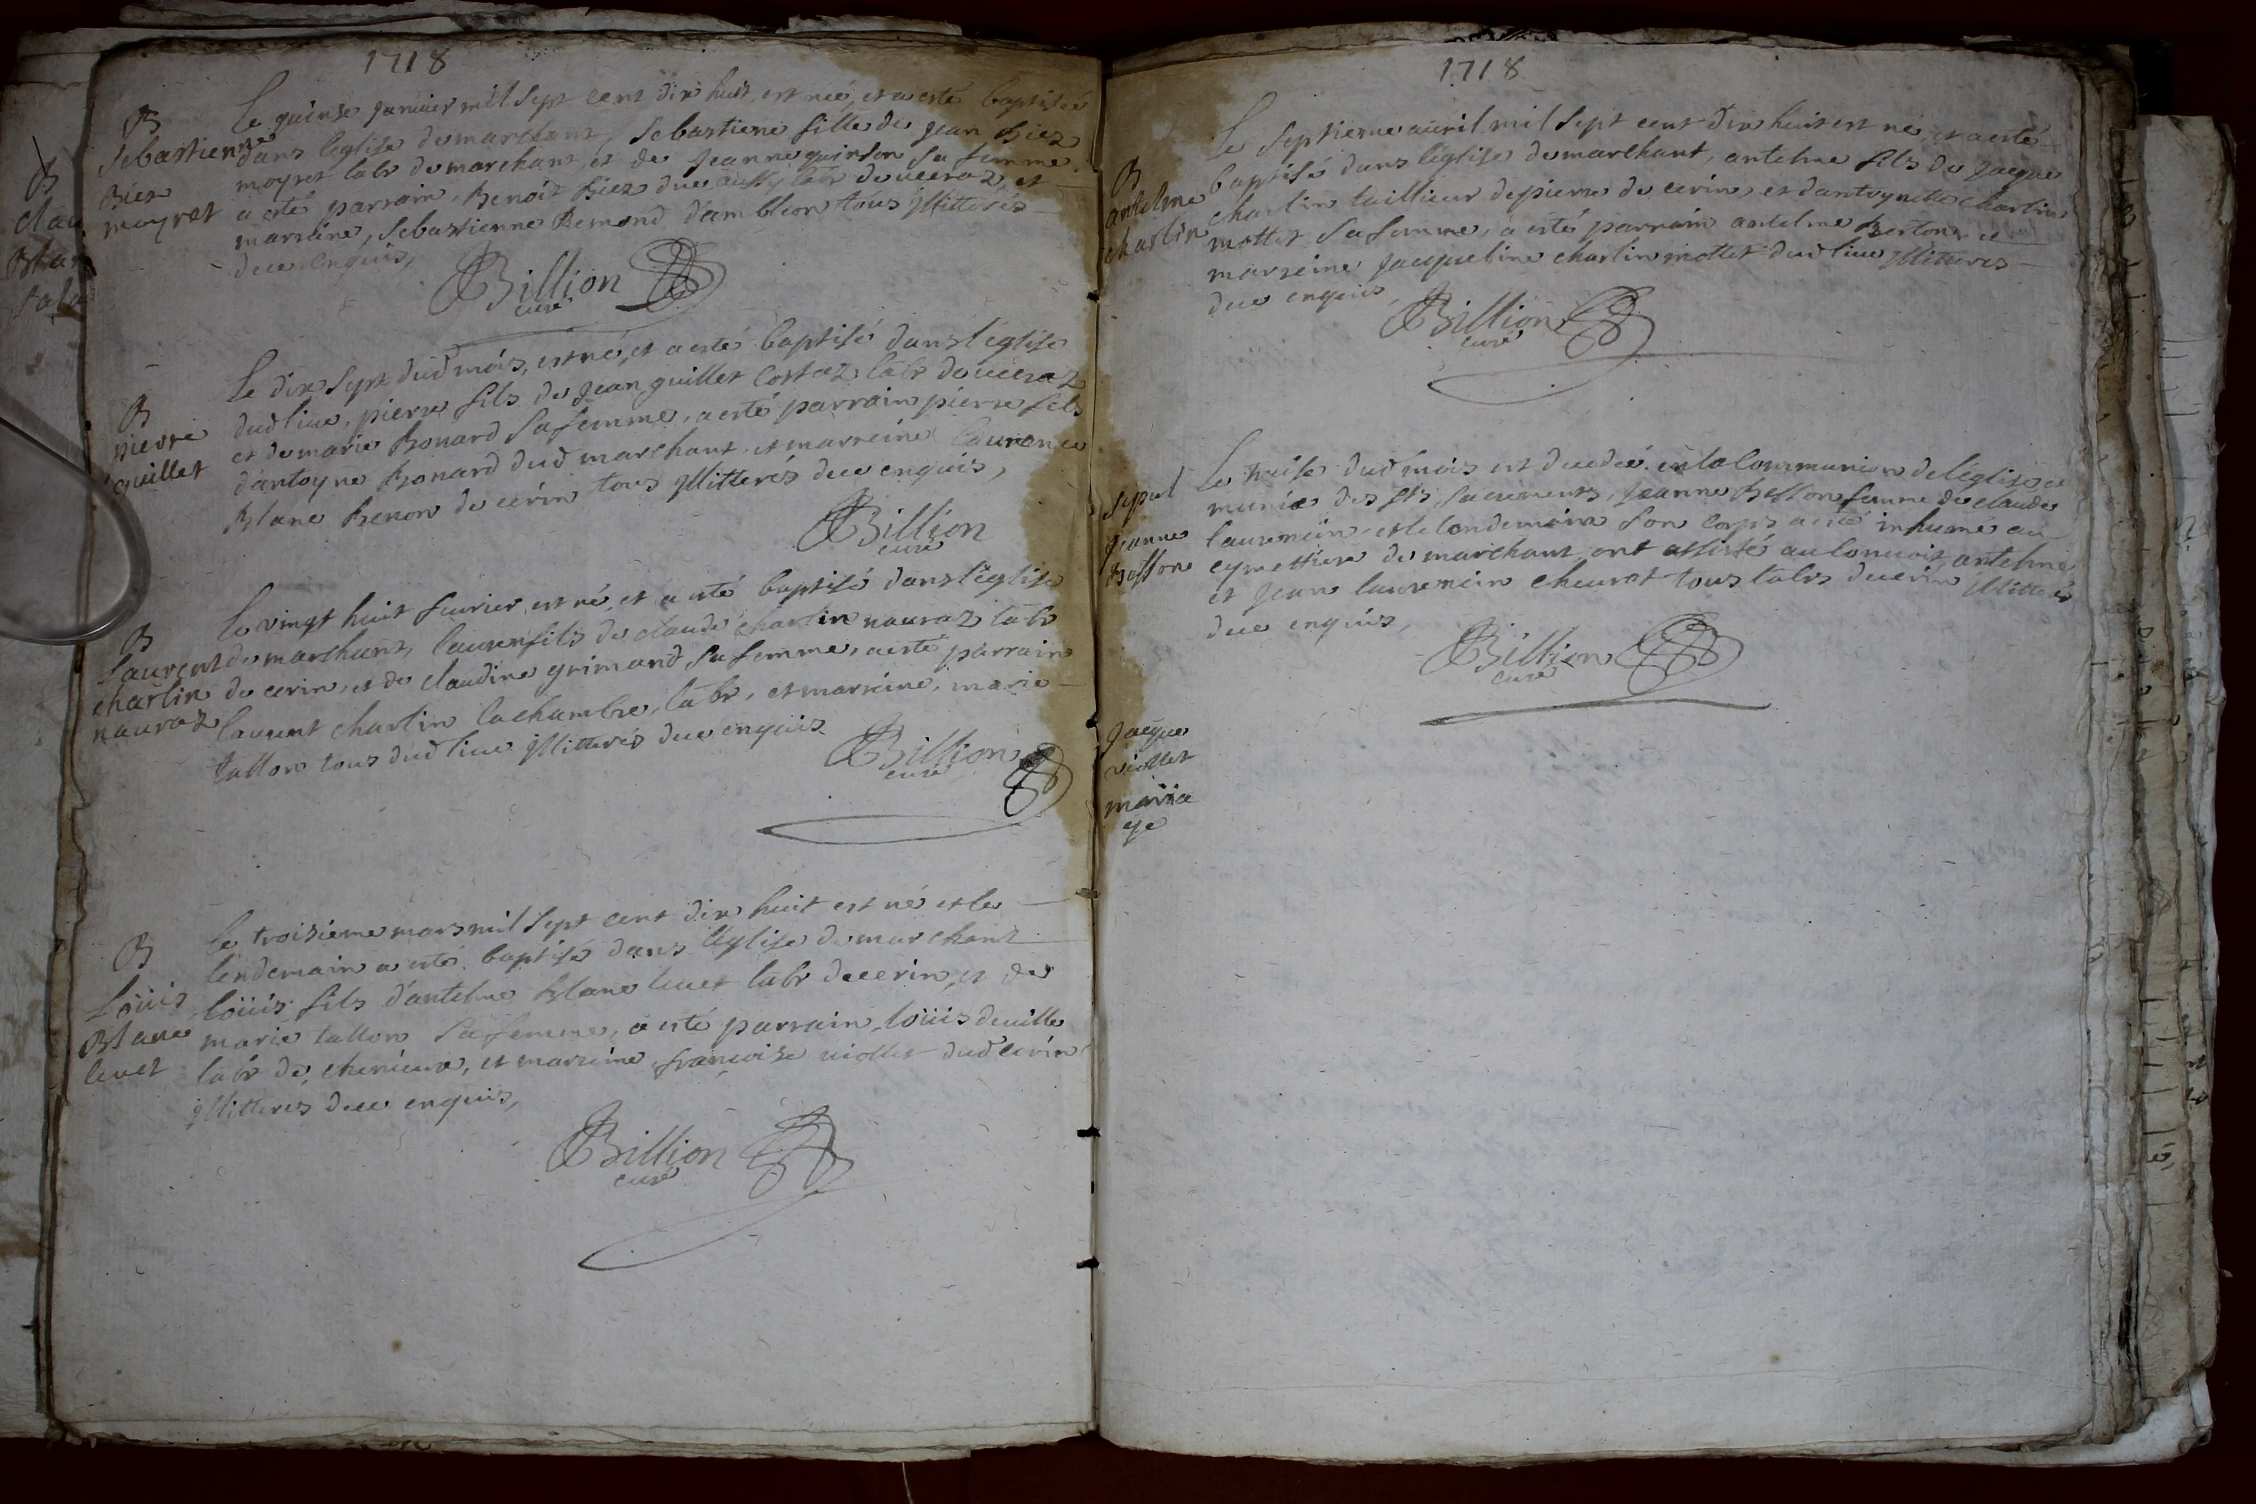 1718
B
Sebastienne
Biez
moyret
Le quinse janvier mil sept cent dix huit, est née, et a esté baptisée
dans l'église de marchant, Sebastiene fille de Jean Biez
moyret labr de marchant, et de Jeanne quinson sa femme
a esté parrain, Benoit Biez due aussy labr de ceraz, et
marraine, Sebastienne Remond d'ambleon tous jllitterés
de ce enquis,
Billion
curé
B
pierre
guillet
Le dix sept dud mois, est né, et a esté baptisé dans l'église
dud lieu, pierre fils de Jean guillet Costaz labr de ceraz
et de marie Bonard sa femme, a esté parrain pierre fils
d'antoyne Bonard dud marchant, et marreine Laurence
Blanc Benon de cerin tous jllitterés de ce enquis,
Billion
curé
B
Laurent
charlin
nauraz
Le vingt huit fevrier est né, et a esté baptisé dans l'église
de marchant, laurent fils de claude charlin nauraz labr
de cerin, et de claudine grimand sa femme, a esté parrain
laurent charlin lachambre, labr, et marreine, marie
tallon tous dud lieu jllitterés de ce enquis
Billion
curé
B
Loüis
Blanc
levet
Le troisieme mars mil sept cent dix huit est né et le
lendemain a esté baptisé dans l'église de marchant
loüis fils d'antelme Blanc levet labr de cerin, et de
marie tallon sa femme, a esté parrain, loüis deville
labr de cherieux, et marreine françoise viollet dud cerin
jllitterés de ce enquis,
Billion
curé
1718
B
antelme
charlin
Le septieme avril mil sept cent dix huit est né, et a esté
baptisé dans l'église de marchant, antelme fils de Jacque
charlin taillieur de pierre de cerin, et d'antoynette charlin
mottet sa femme, a esté parrain antelme Berton et
marreine Jacqueline charlin mottet dud lieu jllitterés
de ce enquis,
Billion
curé
Sepul
Jeanne
Besson
Le treise dud mois est decedée en la Communion de l'église et
munie des sts sacrements, Jeanne Besson femme de claude
laurencin, et le lendemain son corps a esté inhumé au
cymettiere de marchant, ont assisté au convoit, antelme
et Jean laurencin cheurot tous labrs de cerin jllitterés
de ce enquis,
Billion
curé
Jacque
viollet
maria
ge